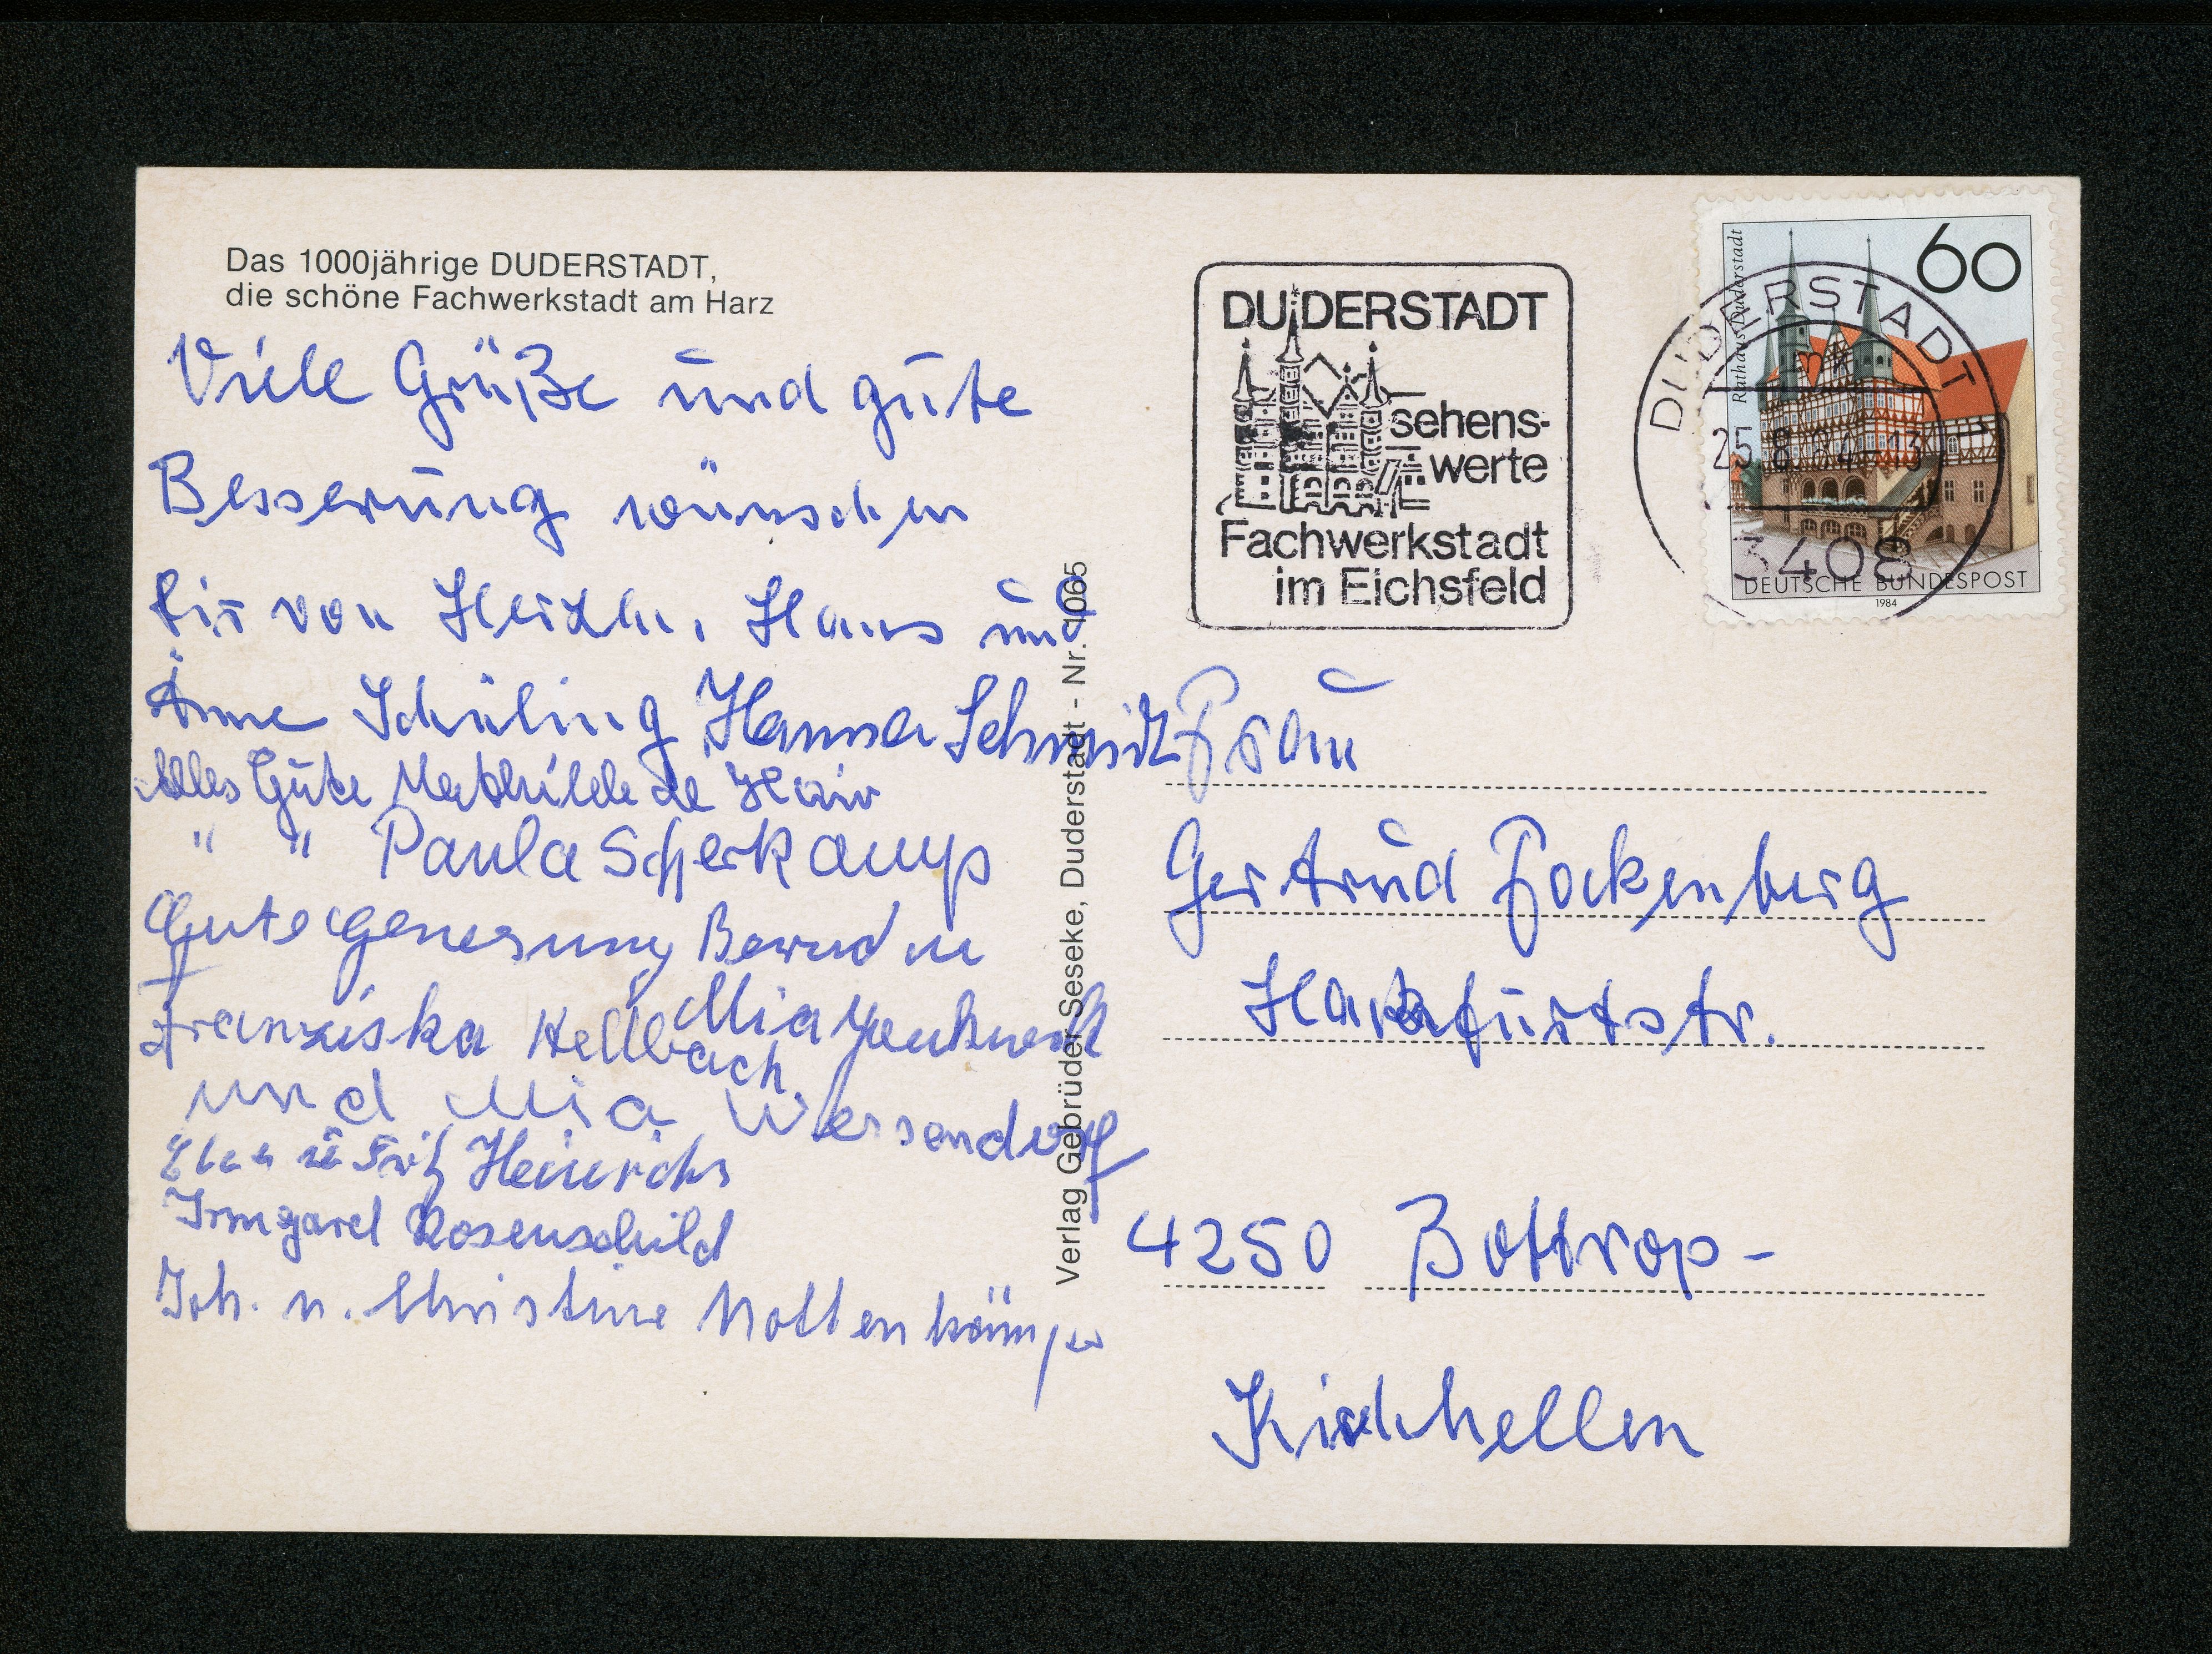 Das 1000jährige DUDERSTADT,
die schöne Fachwerkstadt am Harz
Viele Grüße und gute
Besserung wünschen
dir von Herzen, Hans und
Änne Schüling Hanna Schmidt
Alles Gute Mathilde de
" " Paula Scherkamp
Gute Genesung
Franziska Hellbach Mia
und Mia Wessendorf
u Fritz Heinrichs
Irmgard Rosenschild
Joh. u. Christine Nottenkämper
Verlag Gebrüder Seseke, Duderstadt - Nr. 1065
DUDERSTADT
sehens-
werte
Fachwerkstadt
im Eichsfeld
DUDERSTADT 1
mk
25.8.94-13
3408
60
Rathaus Duderstadt
DEUTSCHE BUNDESPOST
1984
Frau
Gertrud Fockenberg
4250 Bottrop-
Kirchhellen